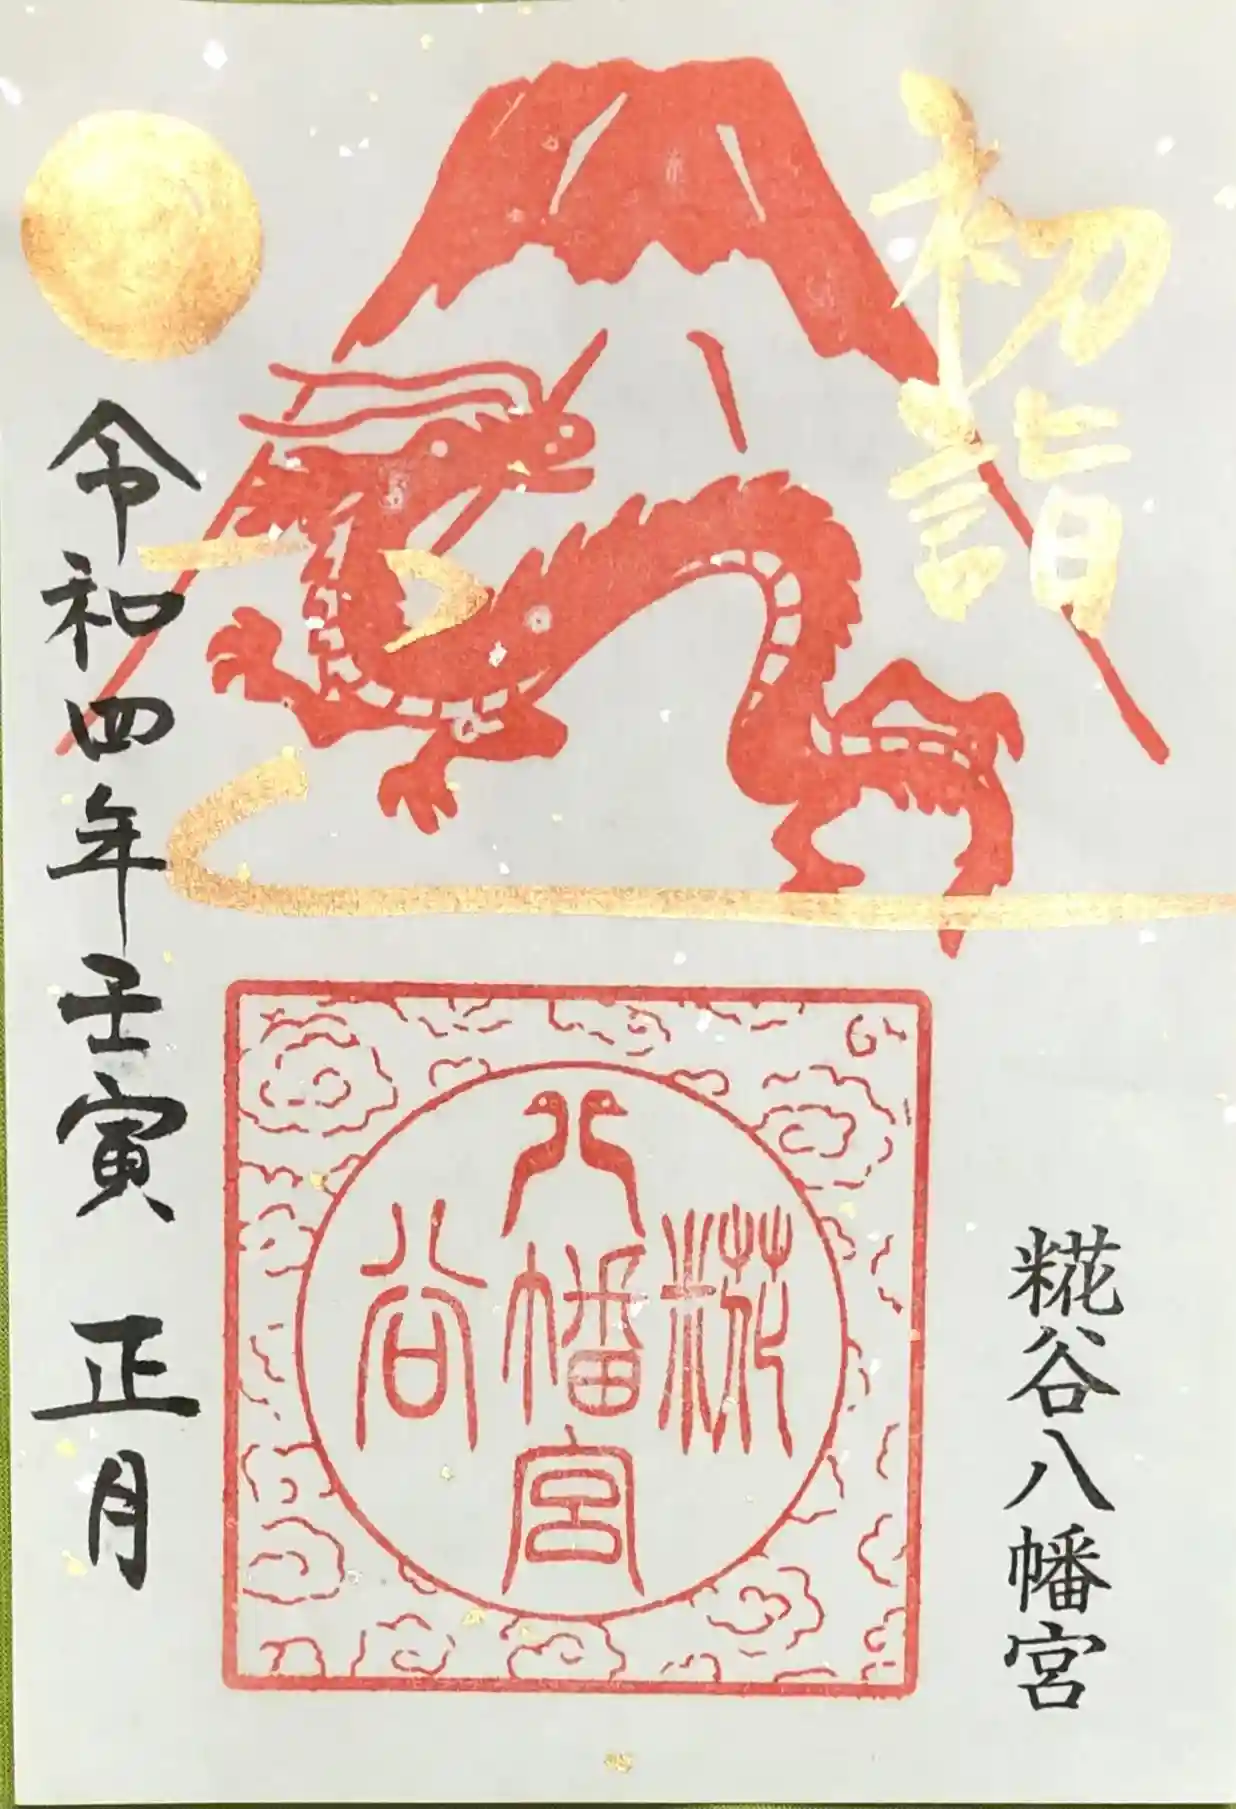 初詣
糀谷八幡宮
糀
八幡宮
谷
令和四年壬寅 正月